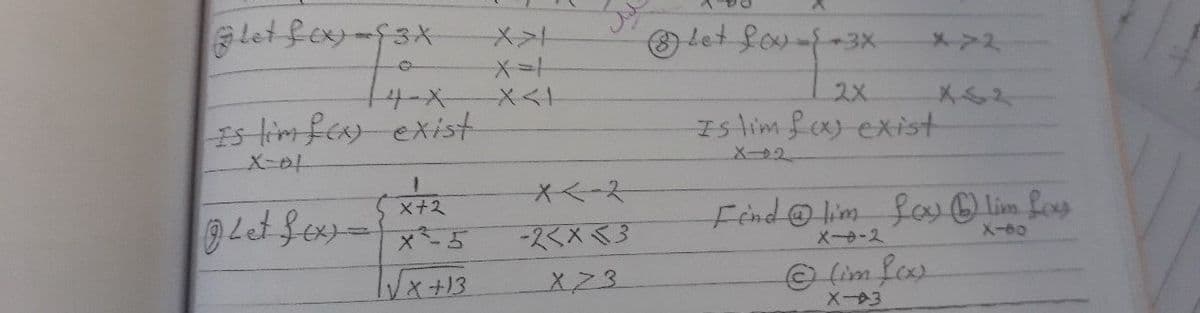 ⑦ Let f(x) = { 3x   x>1
0   x=1
4-x   x<1
Is lim f(x) exist
x→1
⑧ Let f(x) = { -3x   x>2
2x   x≤2
Is lim f(x) exist
x→2
⑨ Let f(x) = { 1/(x+2)   x<-2
x²-5   -2<x≤3
√x+13   x>3
Find ⓐ lim f(x) ⓑ lim f(x)
x→-2   x→0
ⓒ lim f(x)
x→3